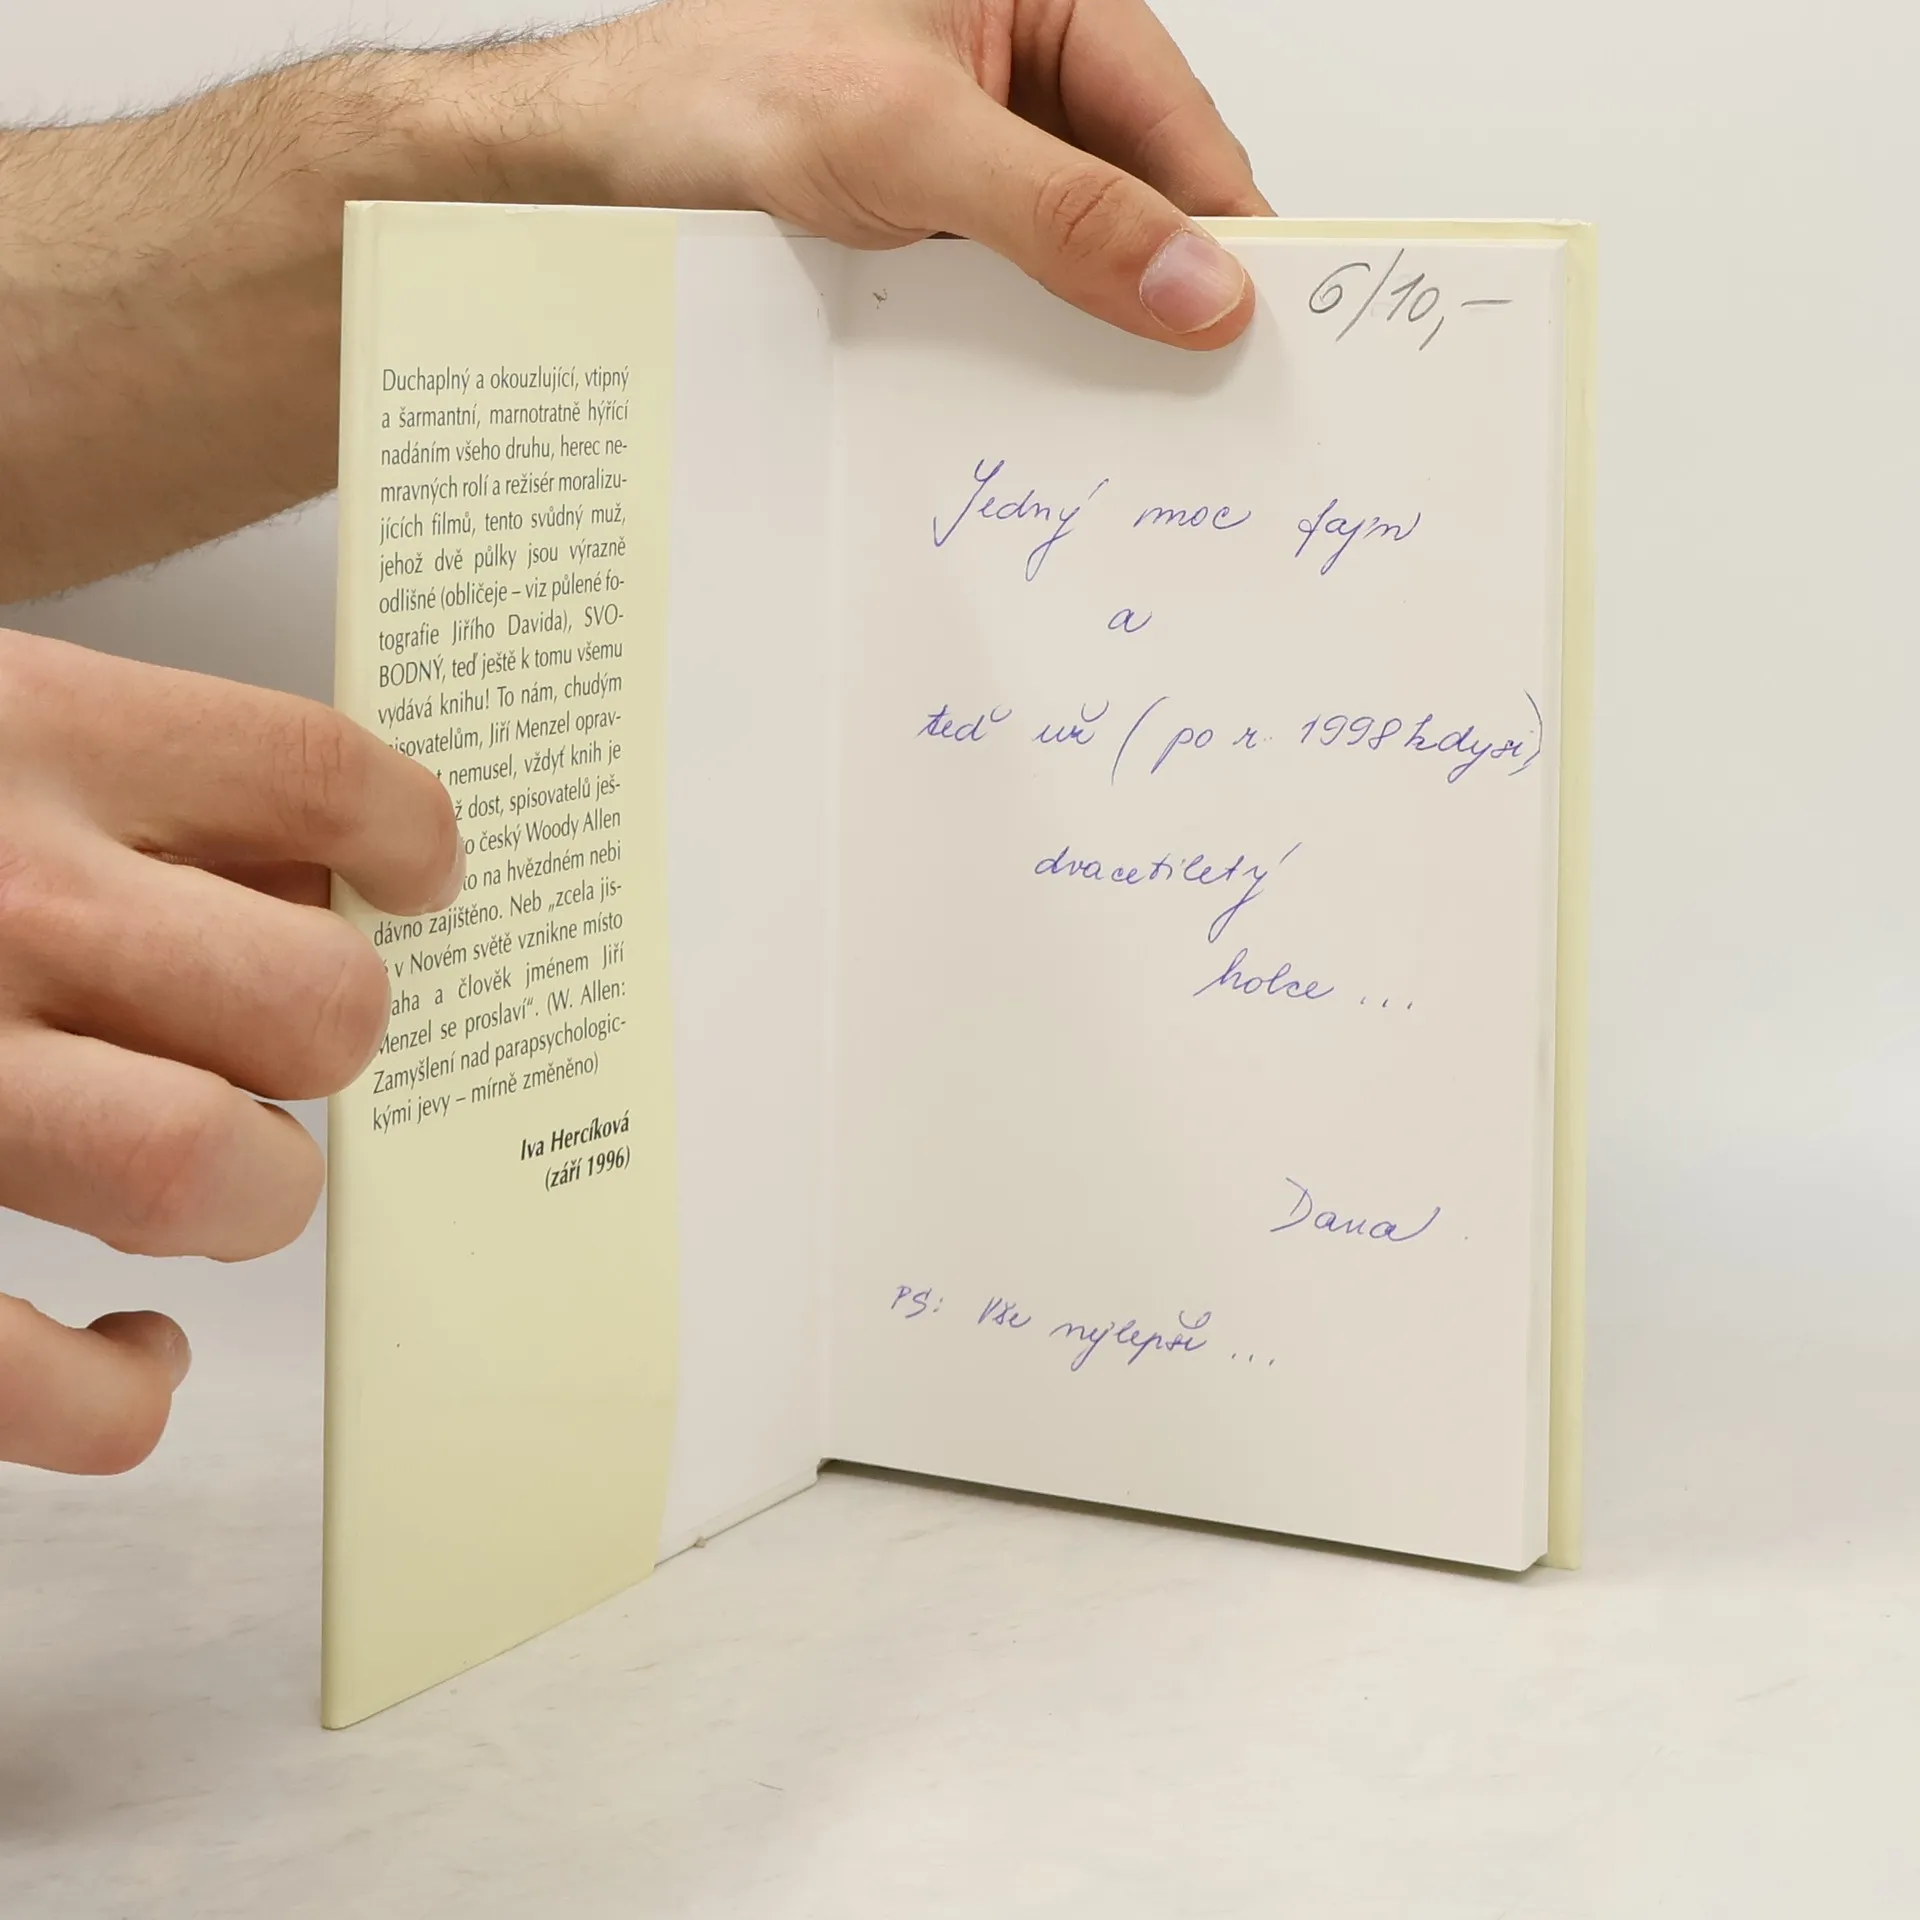 Duchaplný a okouzlující, vtipný
a šarmantní, marnotratně hýřící
nadáním všeho druhu, herec ne-
mravných rolí a režisér moralizu-
jících filmů, tento svůdný muž,
jehož dvě půlky jsou výrazně
odlišné (obličeje – viz půlené fo-
tografie Jiřího Davida), SVO-
BODNÝ, teď ještě k tomu všemu
vydává knihu! To nám, chudým
isovatelům, Jiří Menzel oprav-
t nemusel, vždyť knih je
ž dost, spisovatelů ješ-
o český Woody Allen
to na hvězdném nebi
dávno zajištěno. Neb „zcela jis-
v Novém světě vznikne místo
aha a člověk jménem Jiří
Menzel se proslaví“. (W. Allen:
Zamyšlení nad parapsychologic-
kými jevy – mírně změněno)
Iva Hercíková
(září 1996)
6/10,–
Jedný moc fajn
a
teď už (po r. 1998 kdysi)
dvacetiletý
holce ...
Dana.
PS: Vše nejlepší ...